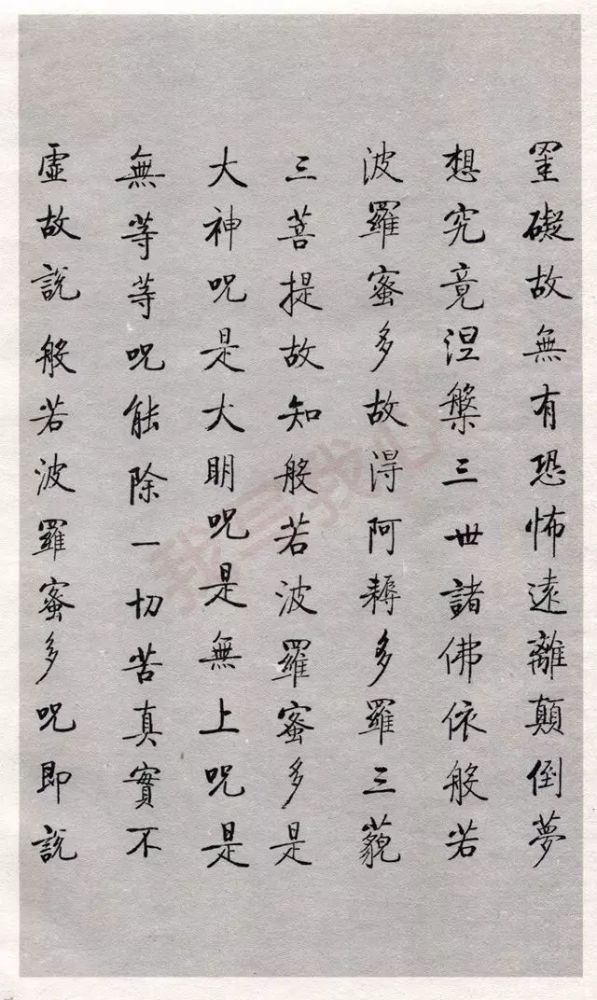 罣礙故無有恐怖遠離顛倒夢
想究竟涅槃三世諸佛依般若
波羅蜜多故得阿耨多羅三藐
三菩提故知般若波羅蜜多是
大神咒是大明咒是無上咒是
無等等咒能除一切苦真實不
虛故說般若波羅蜜多咒即說
我写我心